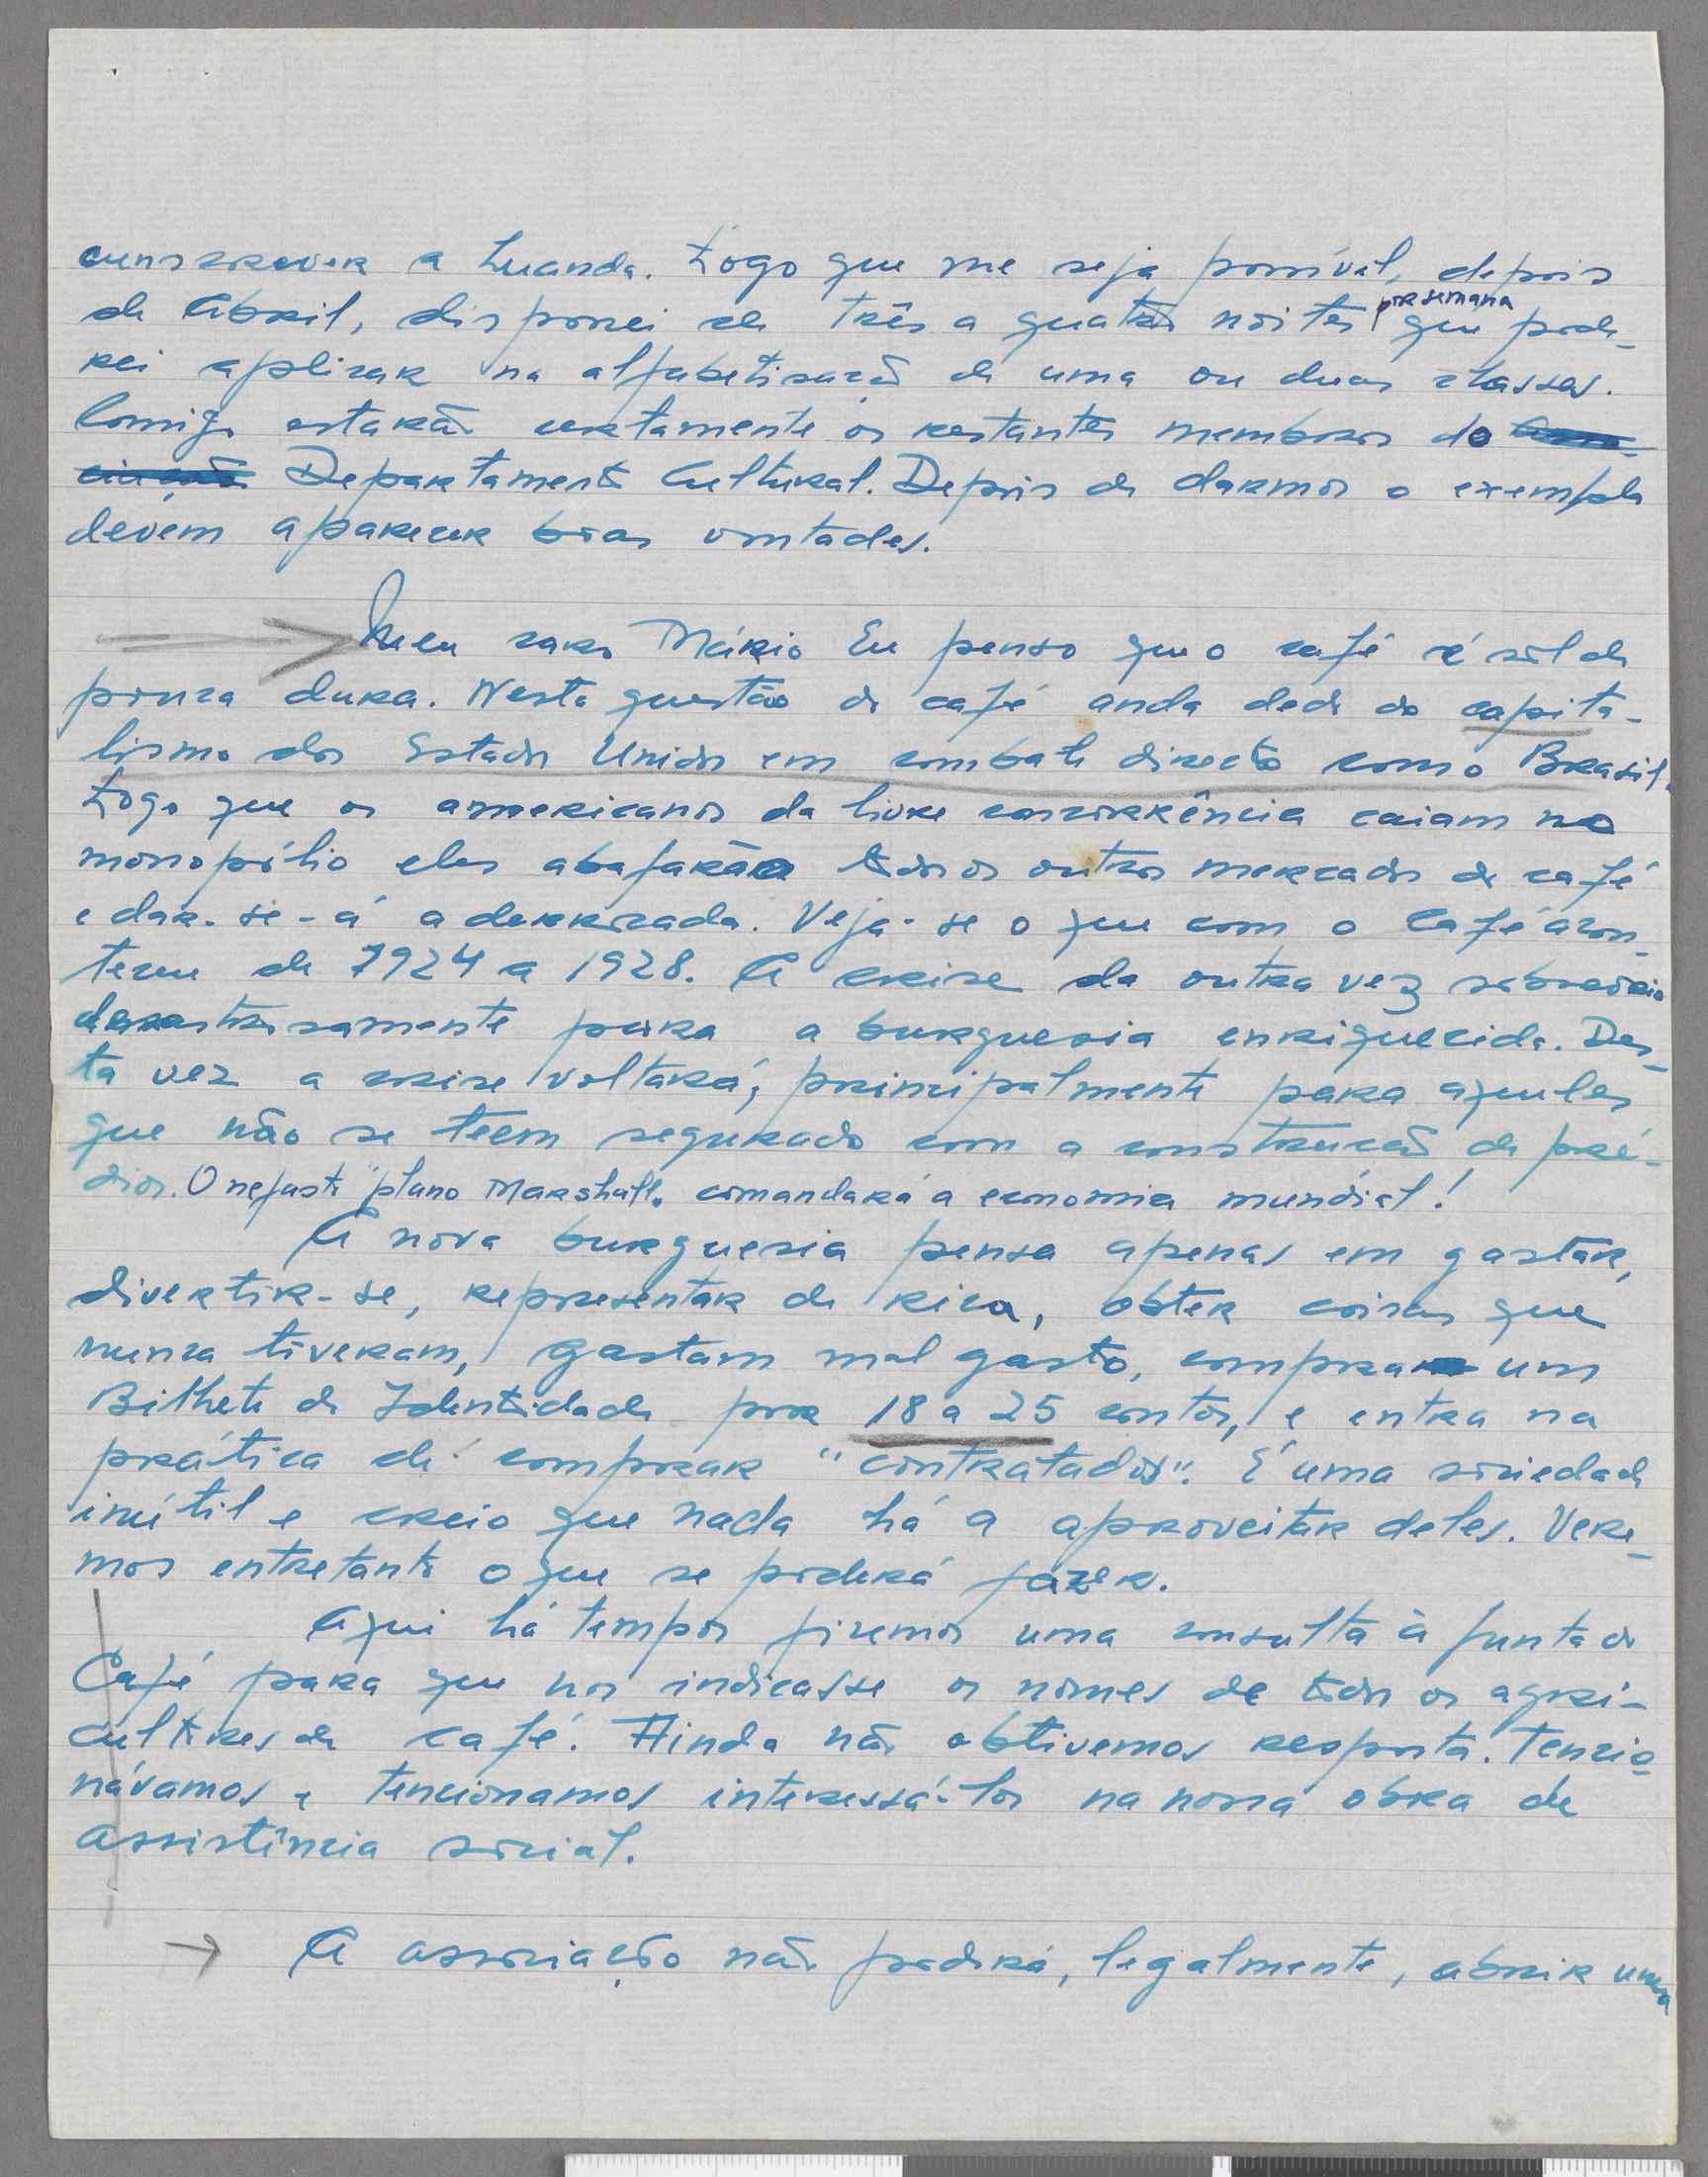 cunscrever a Luanda. Logo que me seja possível, depois
de Abril, disporei de três a quatro noites por semana que pode-
rei aplicar na alfabetisação de uma ou duas classes.
Comigo estarão certamente os restantes membros do
Departamento Cultural. Depois de darmos o exemplo
devem aparecer boas vontades.
Meu caro Mário Eu penso que o café é sol de
pouca dura. Nesta questão do café anda dedo do capita-
lismo dos Estados Unidos em combate directo com o Brasil.
Logo que os americanos da livre concorrência caiam no
monopólio eles abafarão todos os outros mercados de café
e dar-se-á a derrocada. Veja-se o que com o Café acon-
teceu de 1924 a 1928. A crise da outra vez sobreveio
desastrosamente para a burguesia enriquecida. Des-
ta vez a crise voltará, principalmente para aqueles
que não se teem segurado com a construção de pré-
dios. O nefasto "plano Marshall" comandará a economia mundial!
A nova burguesia pensa apenas em gastar,
divertir-se, representar de rica, obter coisas que
nunca tiveram, gastam mal gasto, compra um
Bilhete de Identidade por 18 a 25 contos, e entra na
prática de comprar "contratados". É uma sociedade
inútil e creio que nada há a aproveitar deles. Vere-
mos entretanto o que se poderá fazer.
Aqui há tempos fizemos uma consulta à Junta do
Café para que nos indicasse os nomes de todos os agri-
cultores de café. Ainda não obtivemos resposta. Tencio-
návamos e tencionamos interessá-los na nossa obra de
assistência social.
A associação não poderá, legalmente, abrir uma